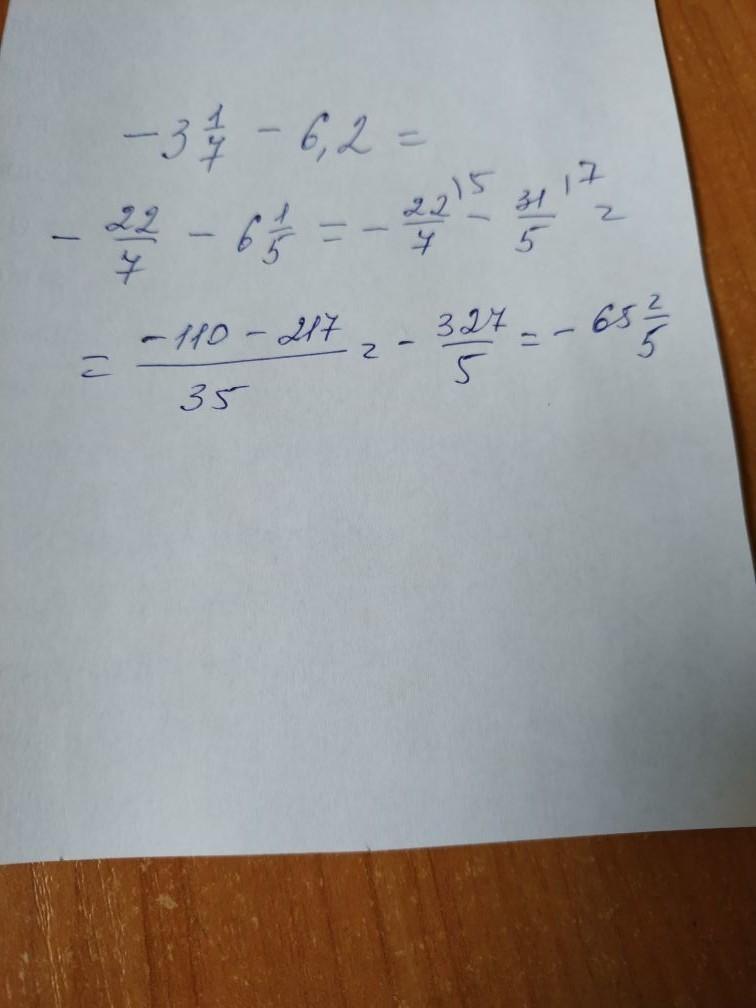 -3 1/7 - 6,2 =
- 22/7 - 6 1/5 = - 22/7 \5 - 31/5 \7 =
= (-110 - 217)/35 = - 327/5 = - 65 2/5